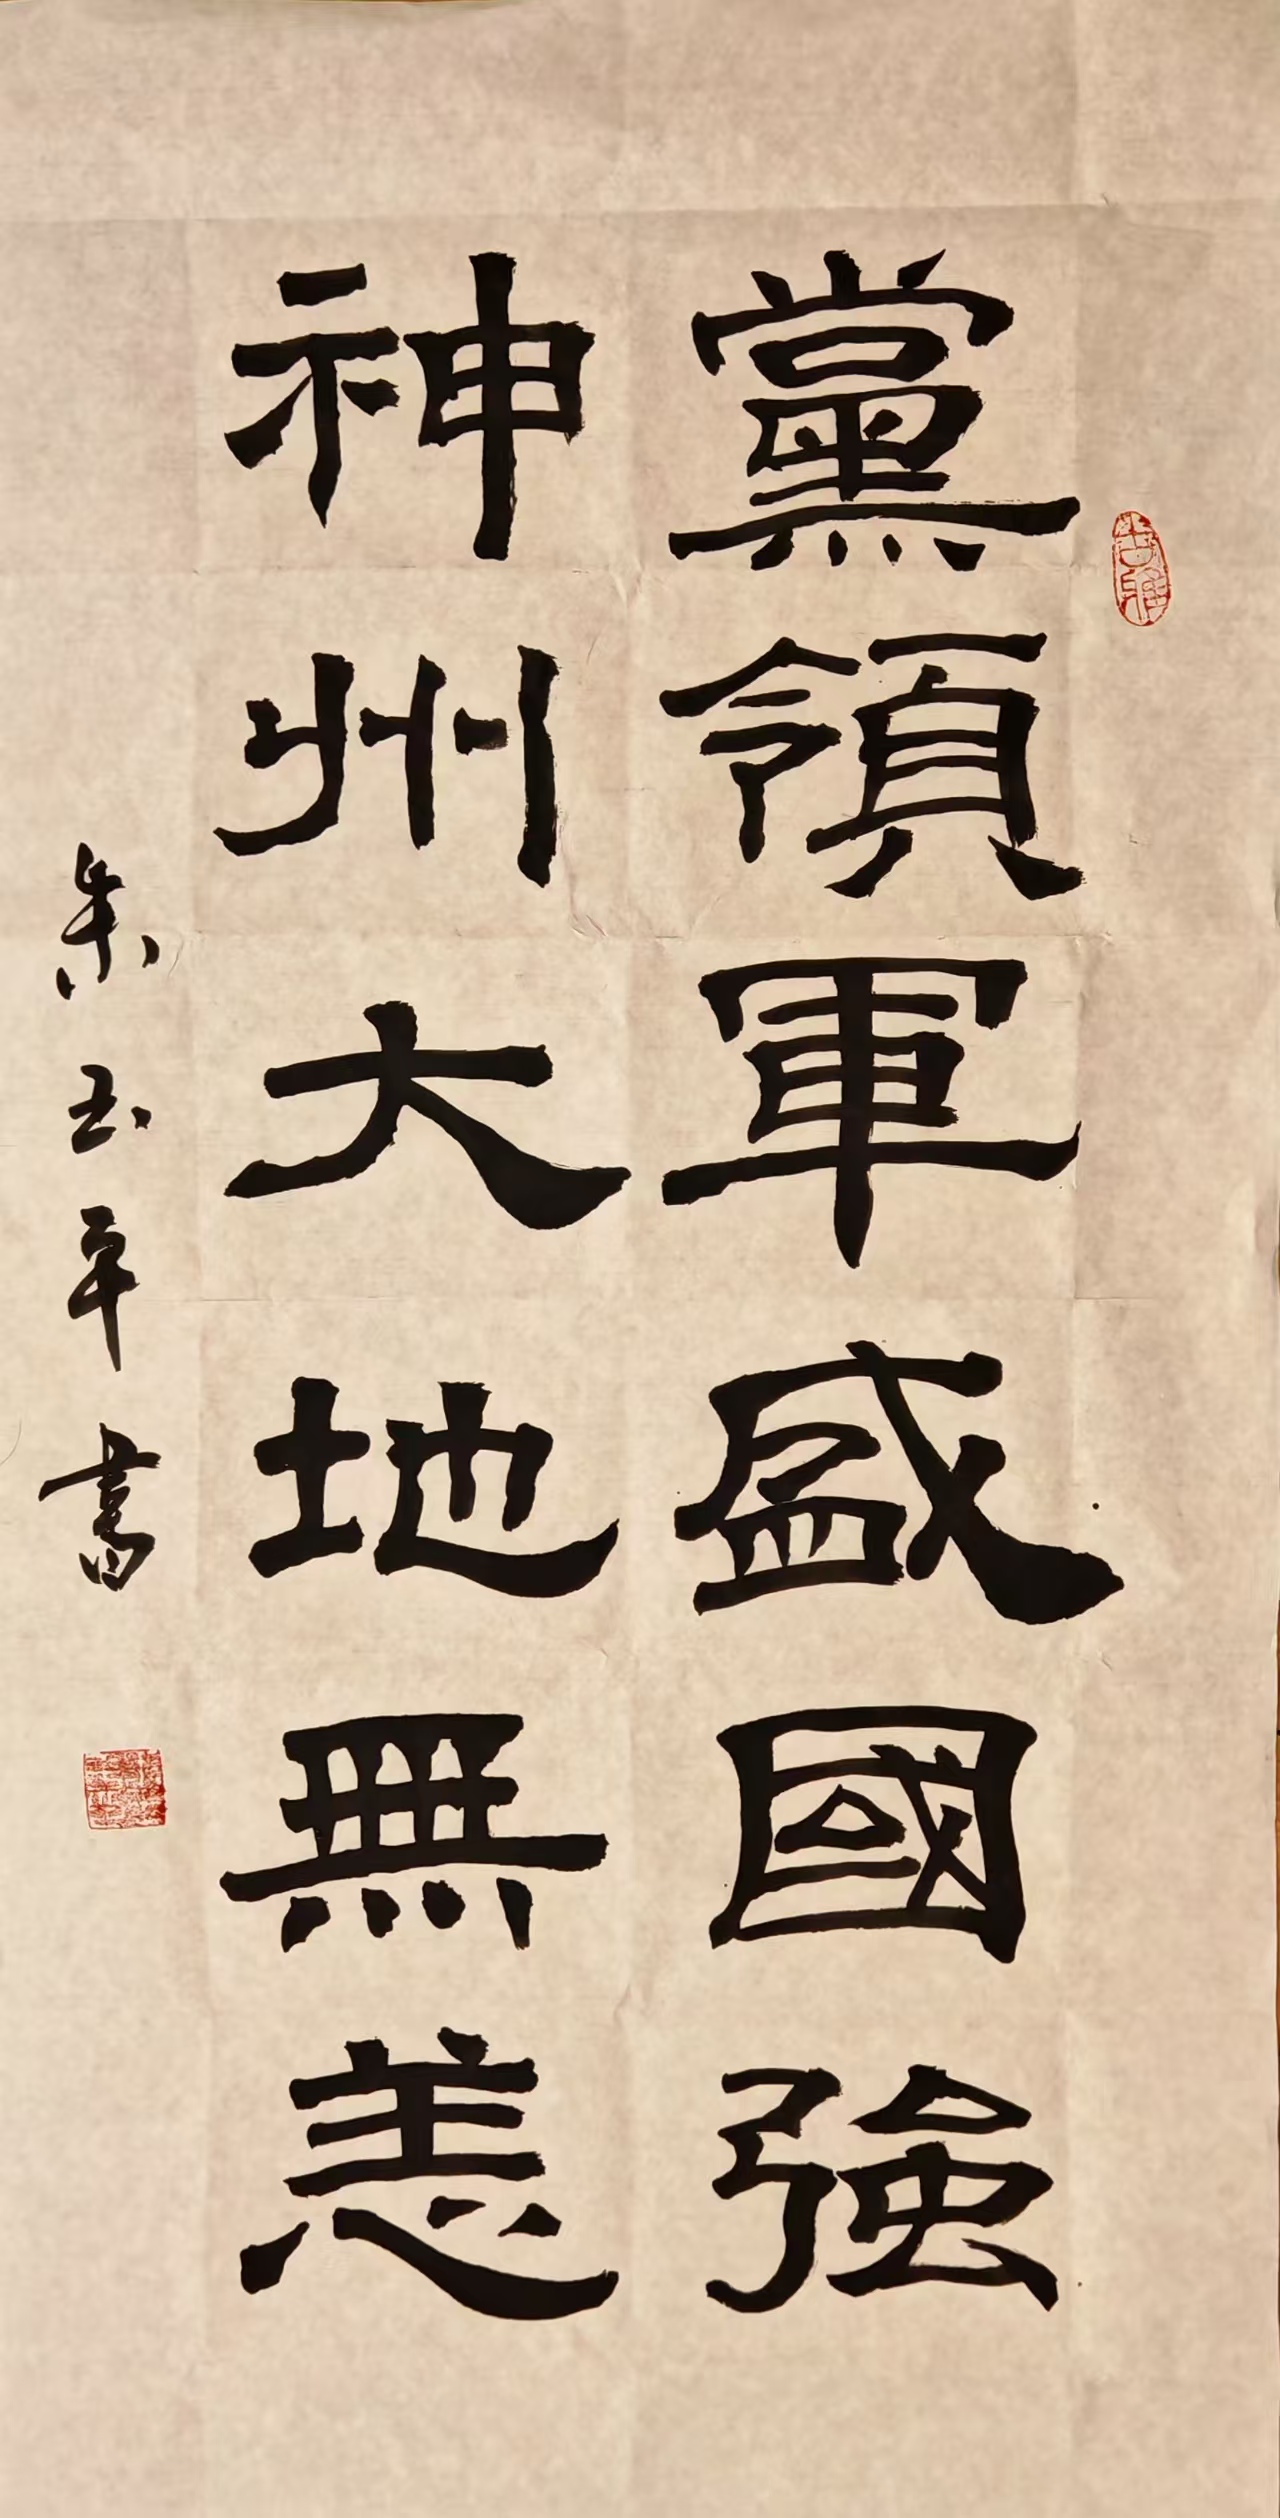 黨領軍盛國強
神州大地無恙
朱玉平書